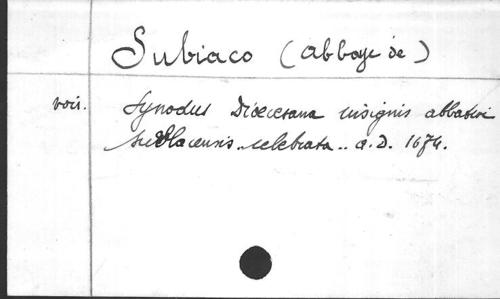 Subiaco (abbaye de)
voir. Synodus Dioecesana insignis abbatiae
sublacensis.. celebrata.. a.D. 1674.